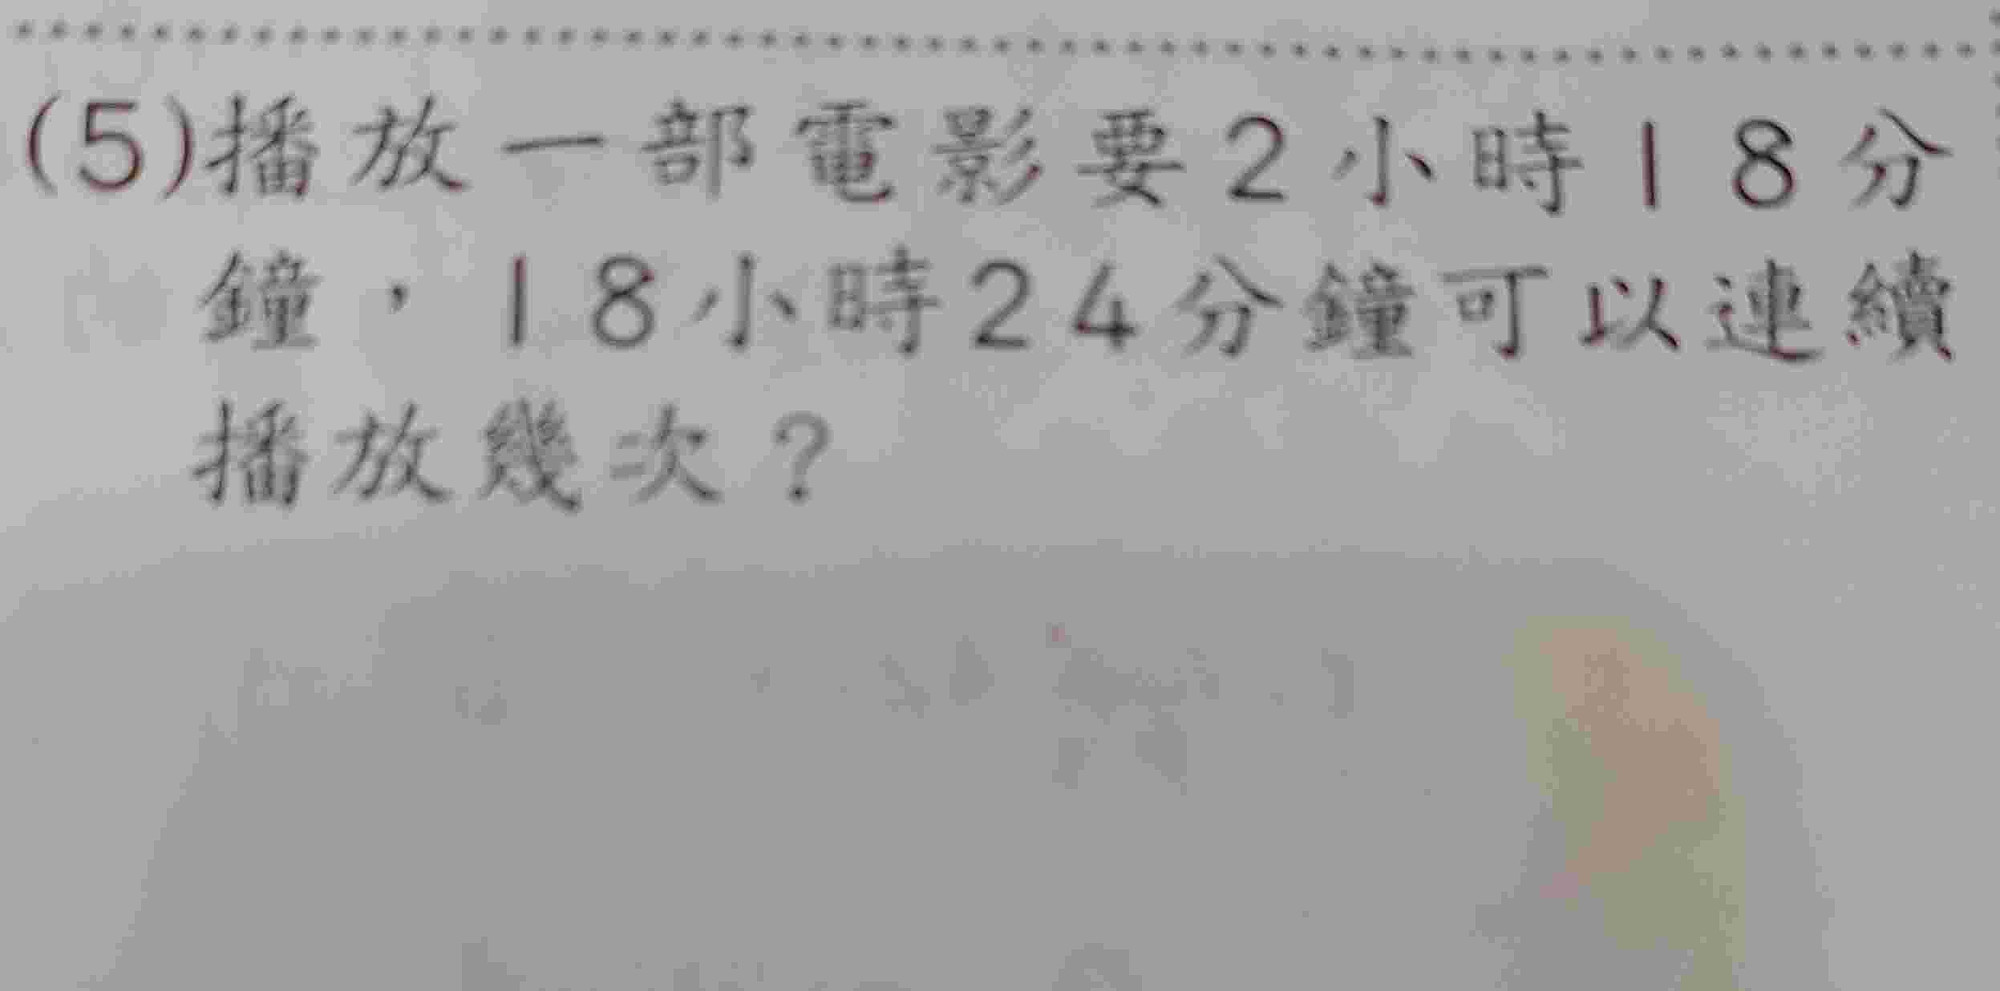 (5)播放一部電影要2小時18分
鐘，18小時24分鐘可以連續
播放幾次？